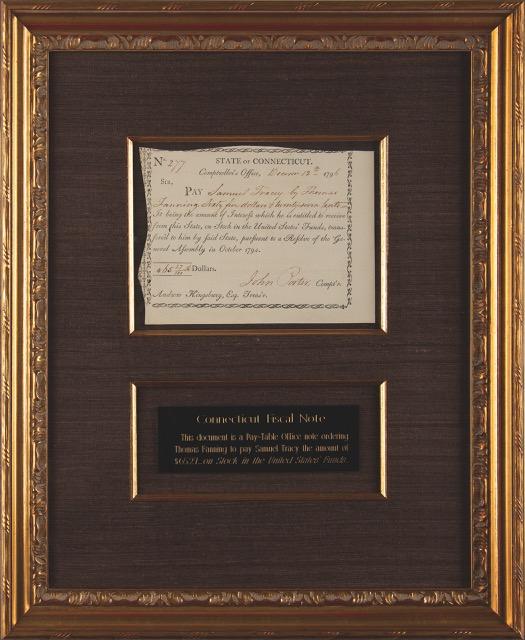 No 277 STATE OF CONNECTICUT.
Comptroller's Office, Decemr 12th 1796
SIR,
PAY Samuel Tracy by Thomas
Fanning Sixty five dollars & twenty seven Cents
It being the amount of Interest which he is entitled to receive
from this State, on Stock in the United States' Funds, trans-
ferred to him by said State, pursuant to a Resolve of the Ge-
neral Assembly in October 1794.
65 27/100 Dollars.
John Porter. Compt'r.
Andrew Kingsbury, Esq. Treas'r.
Connecticut Fiscal Note
This document is a Pay-Table Office note ordering
Thomas Fanning to pay Samuel Tracy the amount of
$65.27...on Stock in the United States' Funds...